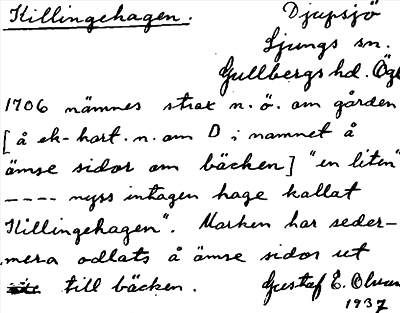 Killingehagen. Djupsjö
Ljungs sn.
Gullbergs hd. Ögl
1706 nämnes strax n. ö. om gården
[å ek-kart. n. om D; namnet å
ömse sidor om bäcken] "en liten"
---- nyss intagen hage kallat
Killingehagen". Marken har seder-
mera odlats å ömse sidor ut
till bäcken. Gustaf E.
1937